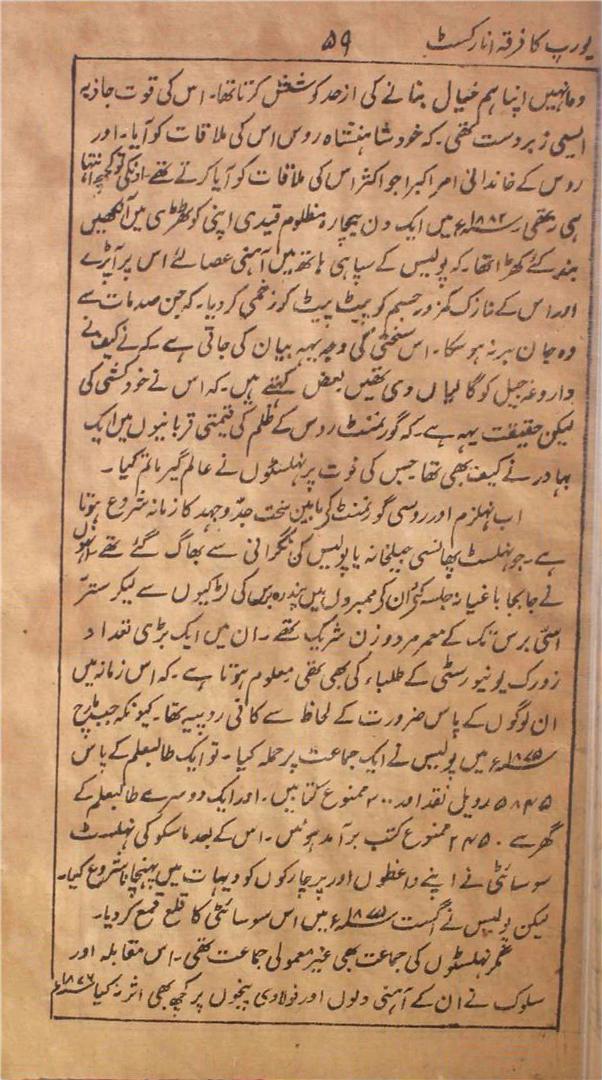 یورپ کا فرقہ انارکسٹ ۵۹
وہ انہیں اپنا ہم خیال بنانے کی ازحد کوشش کرتا تھا۔ اس کی قوت جاذبہ
ایسی زبردست تھی۔ کہ خود شاہنشاہ روس اس کی ملاقات کو آیا۔ اور
روس کے خاندانی امرا کبرا جو اکثر اس کی ملاقات کو آیا کرتے تھے۔ انکی تو کچھ انتہا
ہی نہ تھی ۱۸۸۲ء میں ایک دن بیچارہ مظلوم قیدی اپنی کوٹھڑی میں آنکھیں
بند کئے کھڑا تھا۔ کہ پولیس کے سپاہی ہاتھ میں آہنی عصا لئے اس پر آپڑے
اور اس کے نازک کمزور جسم کو پیٹ پیٹ کر زخمی کر دیا۔ کہ جن صدمات سے
وہ جان بر نہ ہو سکا۔ اس سختی کی وجہ یہہ بیان کی جاتی ہے۔ کہ نے کیف نے
داروغہ جیل کو گالیاں دی تھیں بعض کہتے ہیں۔ کہ اس نے خودکشی کی
لیکن حقیقت یہہ ہے۔ کہ گورنمنٹ روس کے ظلم کی قیمتی قربانیوں میں ایک
بہادر نے کیف بھی تھا جس کی فوت پر نہلسٹوں نے عالمگیر ماتم کیا۔
اب نہلزم اور روسی گورنمنٹ کی مابین سخت جدوجہد کا زمانہ شروع ہوتا
ہے۔ جو نہلسٹ پھانسی جیلخانہ یا پولیس کی نگرانی سے بھاگ گئے تھے۔ انہوں
نے جا بجا باغیانہ جلسہ کئے ان کی ممبروں میں پندرہ برس کی لڑکیوں سے لیکر ستر
اسی برس تک کے معمر مرد و زن شریک تھے۔ ان میں ایک بڑی تعداد
زورک یونیورسٹی کے طلباء کی بھی تھی معلوم ہوتا ہے۔ کہ اس زمانہ میں
ان لوگوں کے پاس ضرورت کے لحاظ سے کافی روپیہ تھا۔ کیونکہ جب مارچ
۱۸۷۵ء میں پولیس نے ایک جماعت پر حملہ کیا۔ تو ایک طالبعلم کے پاس
۵۸۴۵ روبل نقد اور ۲۰۰ ممنوع کتابیں۔ اور ایک دوسرے طالبعلم کے
گھر سے ۲۴۵۰ ممنوع کتب برآمد ہوئیں۔ اس کے بعد ماسکو کی نہلسٹ
سوسائٹی نے اپنے واعظوں اور پرچارکوں کو دیہات میں پہنچانا شروع کیا۔
لیکن پولیس نے اگست ۱۸۷۵ء میں اس سوسائٹی کا قلع قمع کر دیا۔
مگر نہلسٹوں کی جماعت بھی غیر معمولی جماعت تھی۔ اس مقابلہ اور
سلوک نے ان کے آہنی دلوں اور فولادی پنجوں پر کچھ بھی اثر نہ کیا ۱۸۷۶ء